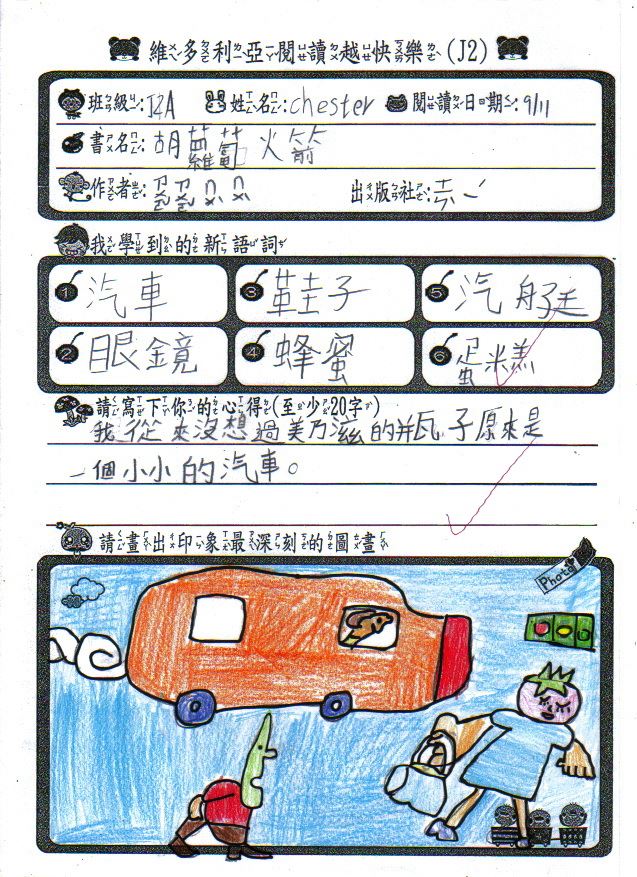 維多利亞閱讀越快樂(J2)
班級:J2A 姓名:chester 閱讀日期:9/11
書名:胡蘿蔔火箭
作者:ㄗㄠㄗㄠㄇㄨㄇㄨ 出版社:
我學到的新語詞
1 汽車 3 鞋子 5 汽艇
2 眼鏡 4 蜂蜜 6 蛋糕
請寫下你的心得(至少20字)
我從來沒想過美乃滋的瓶子原來是
一個小小的汽車。
請畫出印象最深刻的圖畫
Photo